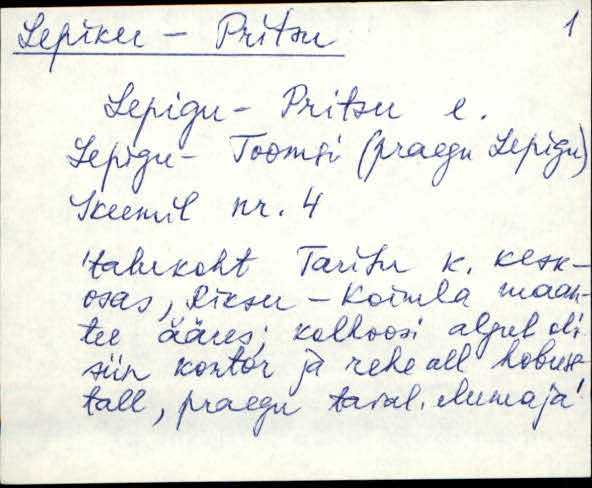 Lepiku – Pritsu 1
Lepigu – Pritsu e.
Lepigu – Toomsi (praegu Lepigu)
Skeemil nr. 4
'talukoht Taritu k. kesk-
osas, Riksu – Koimla maan-
tee ääres; kolhoosi algul oli
siin kontor ja rehe all hobuse-
tall, praegu taval. elumaja'